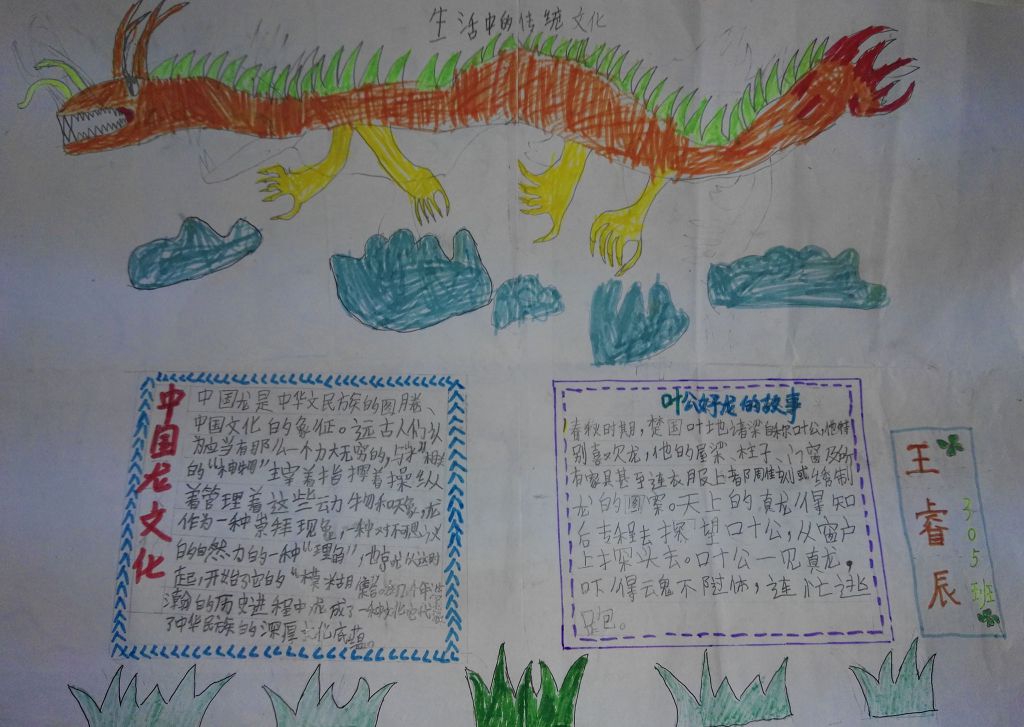 生活中的传统文化
中国龙文化
中国龙是中华文民族的图腾、
中国文化的象征。远古人们认
为应当有那么一个力大无穷的，与
的“神物”主宰着指挥着操纵
着管理着这些动物和天象，龙
作为一种崇拜现象，一种对不可思议
的自然力的一种“理角”，也就从这时
起，开始了它的“模糊
瀚的历史进程中龙成了一种文化它代表
了中华民族的深厚文化底蕴。
叶公好龙的故事
春秋时期，楚国叶地诸梁自称叶公，他特
别喜欢龙，他的屋梁、柱子、门窗及所
有家具甚至连衣服上都雕刻或绘制
龙的图案。天上的真龙得知
后去程去探望叶公，从窗户
上探头去。叶公一见真龙，
吓得云鬼不附体，连忙逃
跑。
王睿辰
305班